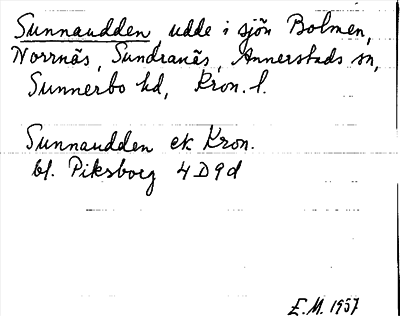 Sunnaudden, udde i sjön Bolmen,
Norrnäs, Sundranäs, Annerstads sn,
Sunnerbo hd, Kron. l.
Sunnaudden ek Kron.
bl. Piksborg 4D9d
E.M. 1957